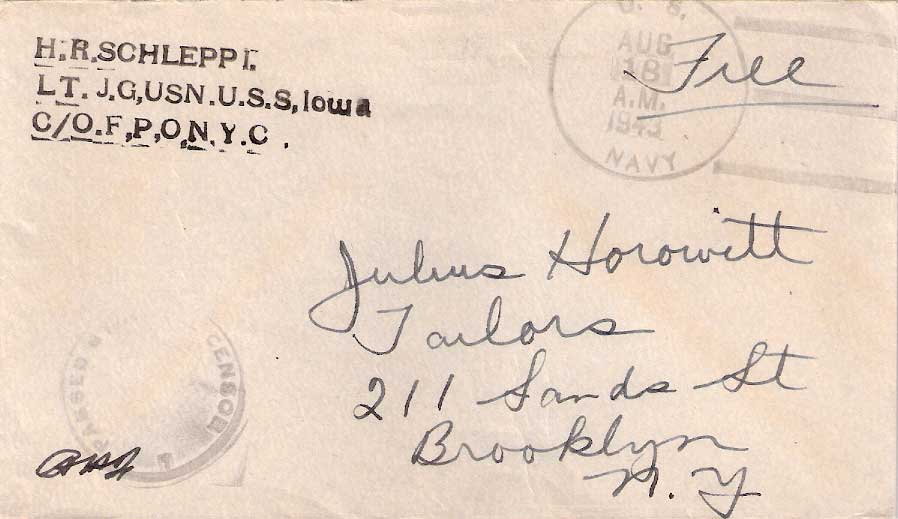 H.R.SCHLEPPI.
LT. J.G,USN.U.S.S,Iowa
C/O.F,P,O,N.Y.C.
U. S.
AUG
18
A.M.
1943
NAVY
Free
Julius Horowitt
Tailors
211 Sands St
Brooklyn
N. Y
PASSED BY
CENSOR